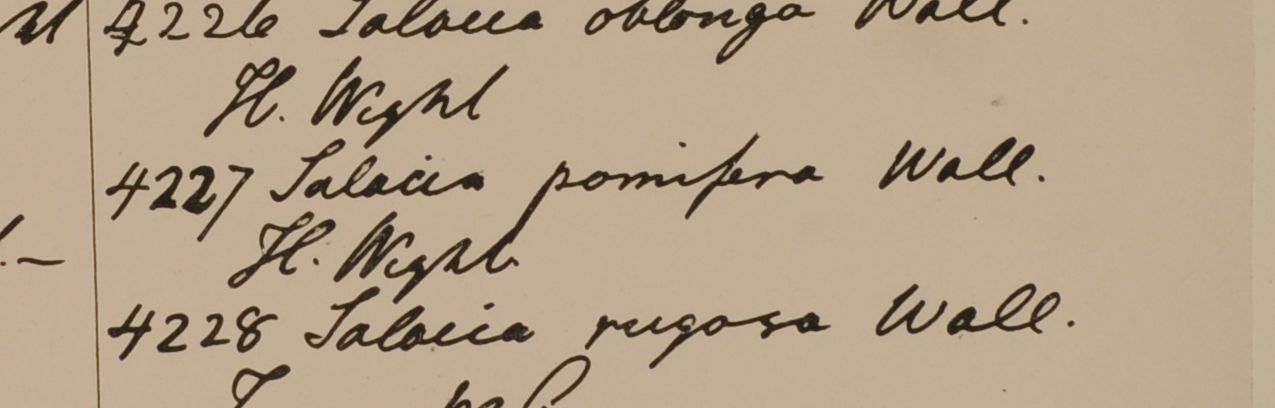 4226 Salacia oblonga Wall.
H. Wight
4227 Salacia pomifera Wall.
H. Wight
4228 Salacia rugosa Wall.